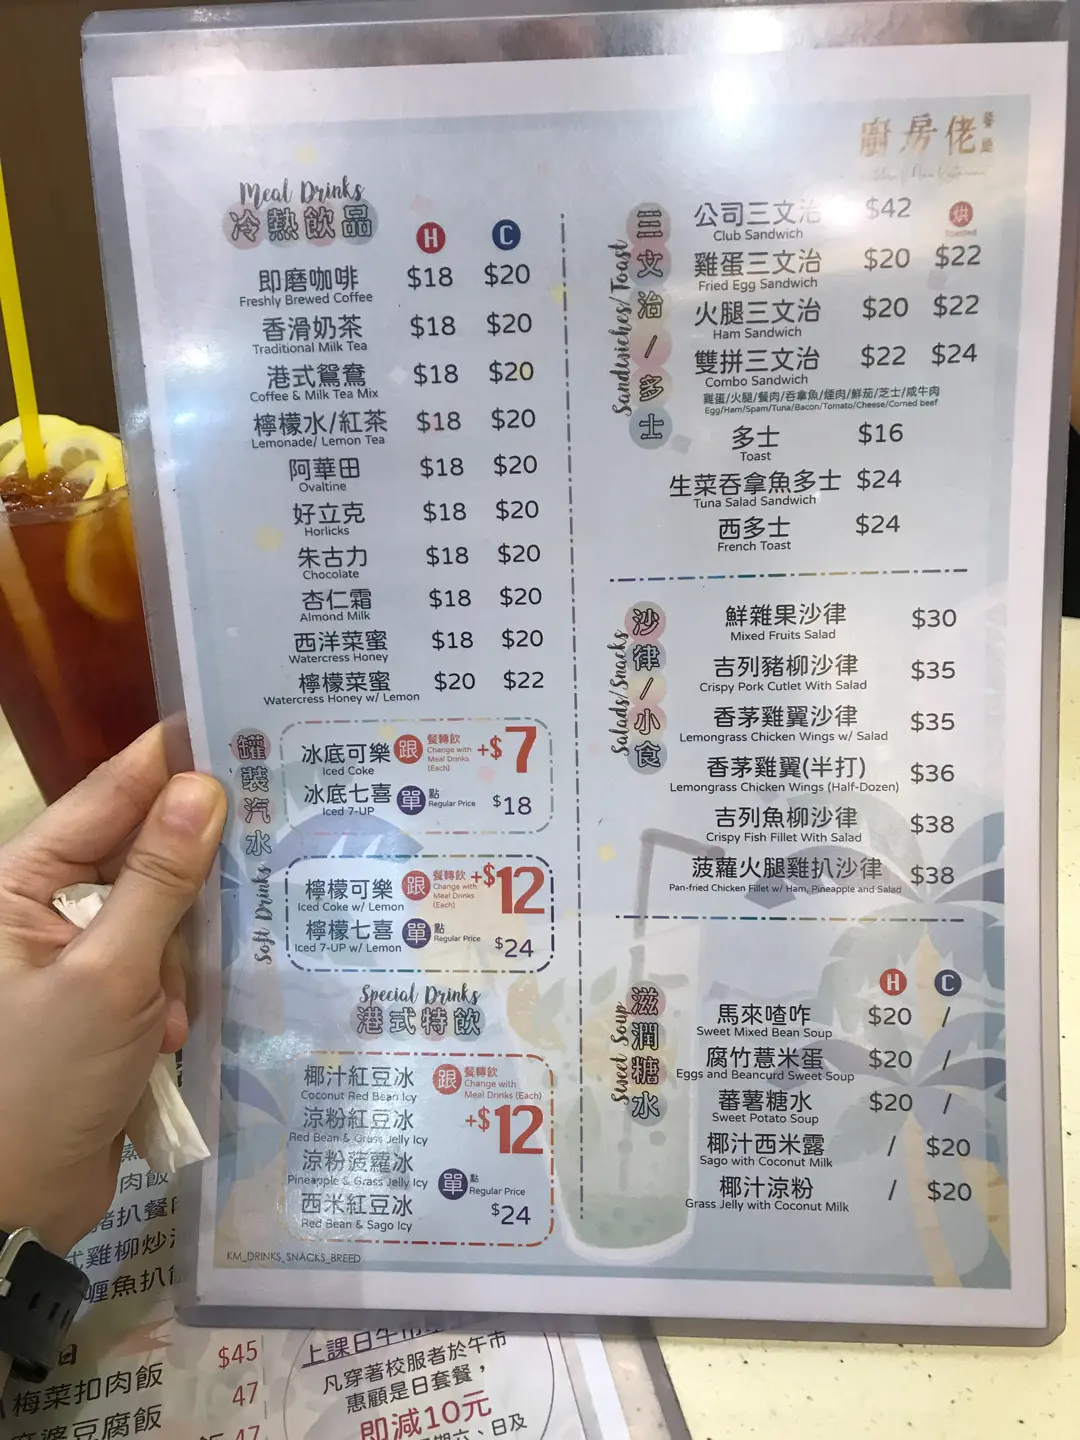 廚房佬
餐廳
Meal Drinks
冷熱飲品
H C
即磨咖啡 $18 $20
Freshly Brewed Coffee
香滑奶茶 $18 $20
Traditional Milk Tea
港式鴛鴦 $18 $20
Coffee & Milk Tea Mix
檸檬水/紅茶 $18 $20
Lemonade/ Lemon Tea
阿華田 $18 $20
Ovaltine
好立克 $18 $20
Horlicks
朱古力 $18 $20
Chocolate
杏仁霜 $18 $20
Almond Milk
西洋菜蜜 $18 $20
Watercress Honey
檸檬菜蜜 $20 $22
Watercress Honey w/ Lemon
罐裝汽水
Soft Drinks
冰底可樂
Iced Coke
跟 餐轉飲 +$7
Change with
Meal Drinks
(Each)
冰底七喜
Iced 7-UP
單 點 $18
Regular Price
檸檬可樂
Iced Coke w/ Lemon
跟 餐轉飲 +$12
Change with
Meal Drinks
(Each)
檸檬七喜
Iced 7-UP w/ Lemon
單 點 $24
Regular Price
Special Drinks
港式特飲
椰汁紅豆冰
Coconut Red Bean Icy
涼粉紅豆冰
Red Bean & Grass Jelly Icy
涼粉菠蘿冰
Pineapple & Grass Jelly Icy
西米紅豆冰
Red Bean & Sago Icy
跟 餐轉飲
Change with
Meal Drinks (Each)
+$12
單 點
Regular Price
$24
KM_DRINKS_SNACKS_BREED
三文治/多士
Sandwiches/Toast
公司三文治 $42 烘
Club Sandwich Toasted
雞蛋三文治 $20 $22
Fried Egg Sandwich
火腿三文治 $20 $22
Ham Sandwich
雙拼三文治 $22 $24
Combo Sandwich
雞蛋/火腿/餐肉/吞拿魚/煙肉/鮮茄/芝士/咸牛肉
Egg/Ham/Spam/Tuna/Bacon/Tomato/Cheese/Corned beef
多士 $16
Toast
生菜吞拿魚多士 $24
Tuna Salad Sandwich
西多士 $24
French Toast
沙律/小食
Salads/Snacks
鮮雜果沙律 $30
Mixed Fruits Salad
吉列豬柳沙律 $35
Crispy Pork Cutlet With Salad
香茅雞翼沙律 $35
Lemongrass Chicken Wings w/ Salad
香茅雞翼(半打) $36
Lemongrass Chicken Wings (Half-Dozen)
吉列魚柳沙律 $38
Crispy Fish Fillet With Salad
菠蘿火腿雞扒沙律 $38
Pan-fried Chicken Fillet w/ Ham, Pineapple and Salad
滋潤糖水
Sweet Soup
H C
馬來喳咋 $20 /
Sweet Mixed Bean Soup
腐竹薏米蛋 $20 /
Eggs and Beancurd Sweet Soup
蕃薯糖水 $20 /
Sweet Potato Soup
椰汁西米露 / $20
Sago with Coconut Milk
椰汁涼粉 / $20
Grass Jelly with Coconut Milk
肉飯
豬扒餐
式雞柳炒
喱魚扒
$45
梅菜扣肉飯 47
婆豆腐飯 47
上課日午市
凡穿著校服者於午市
惠顧是日套餐，
即減10元
期六、日及